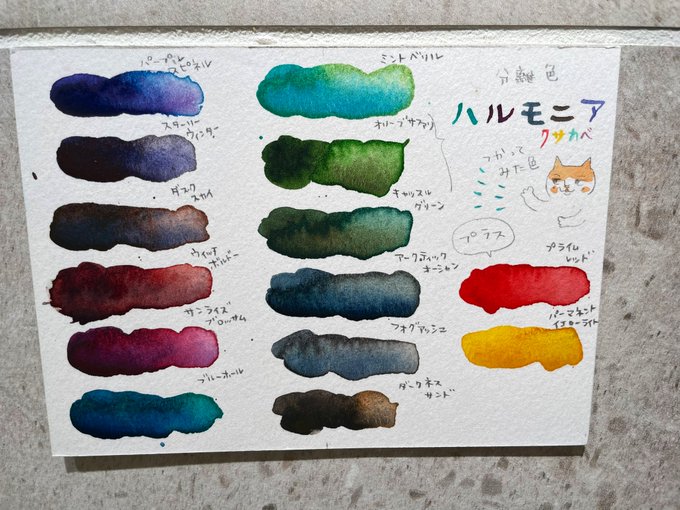 パープル
スピネル
スターリー
ウィンター
ダスク
スカイ
ウィッチ
ボルドー
サンライズ
ブロッサム
ブルーホール
ミントベリル
オリーブサファリ
キャッスル
グリーン
アークティック
オーシャン
フォグアッシュ
ダークネス
サンド
分離色
ハルモニア
クサカベ
つかって
みた色
プラス
プライム
レッド
パーマネント
イエローライト